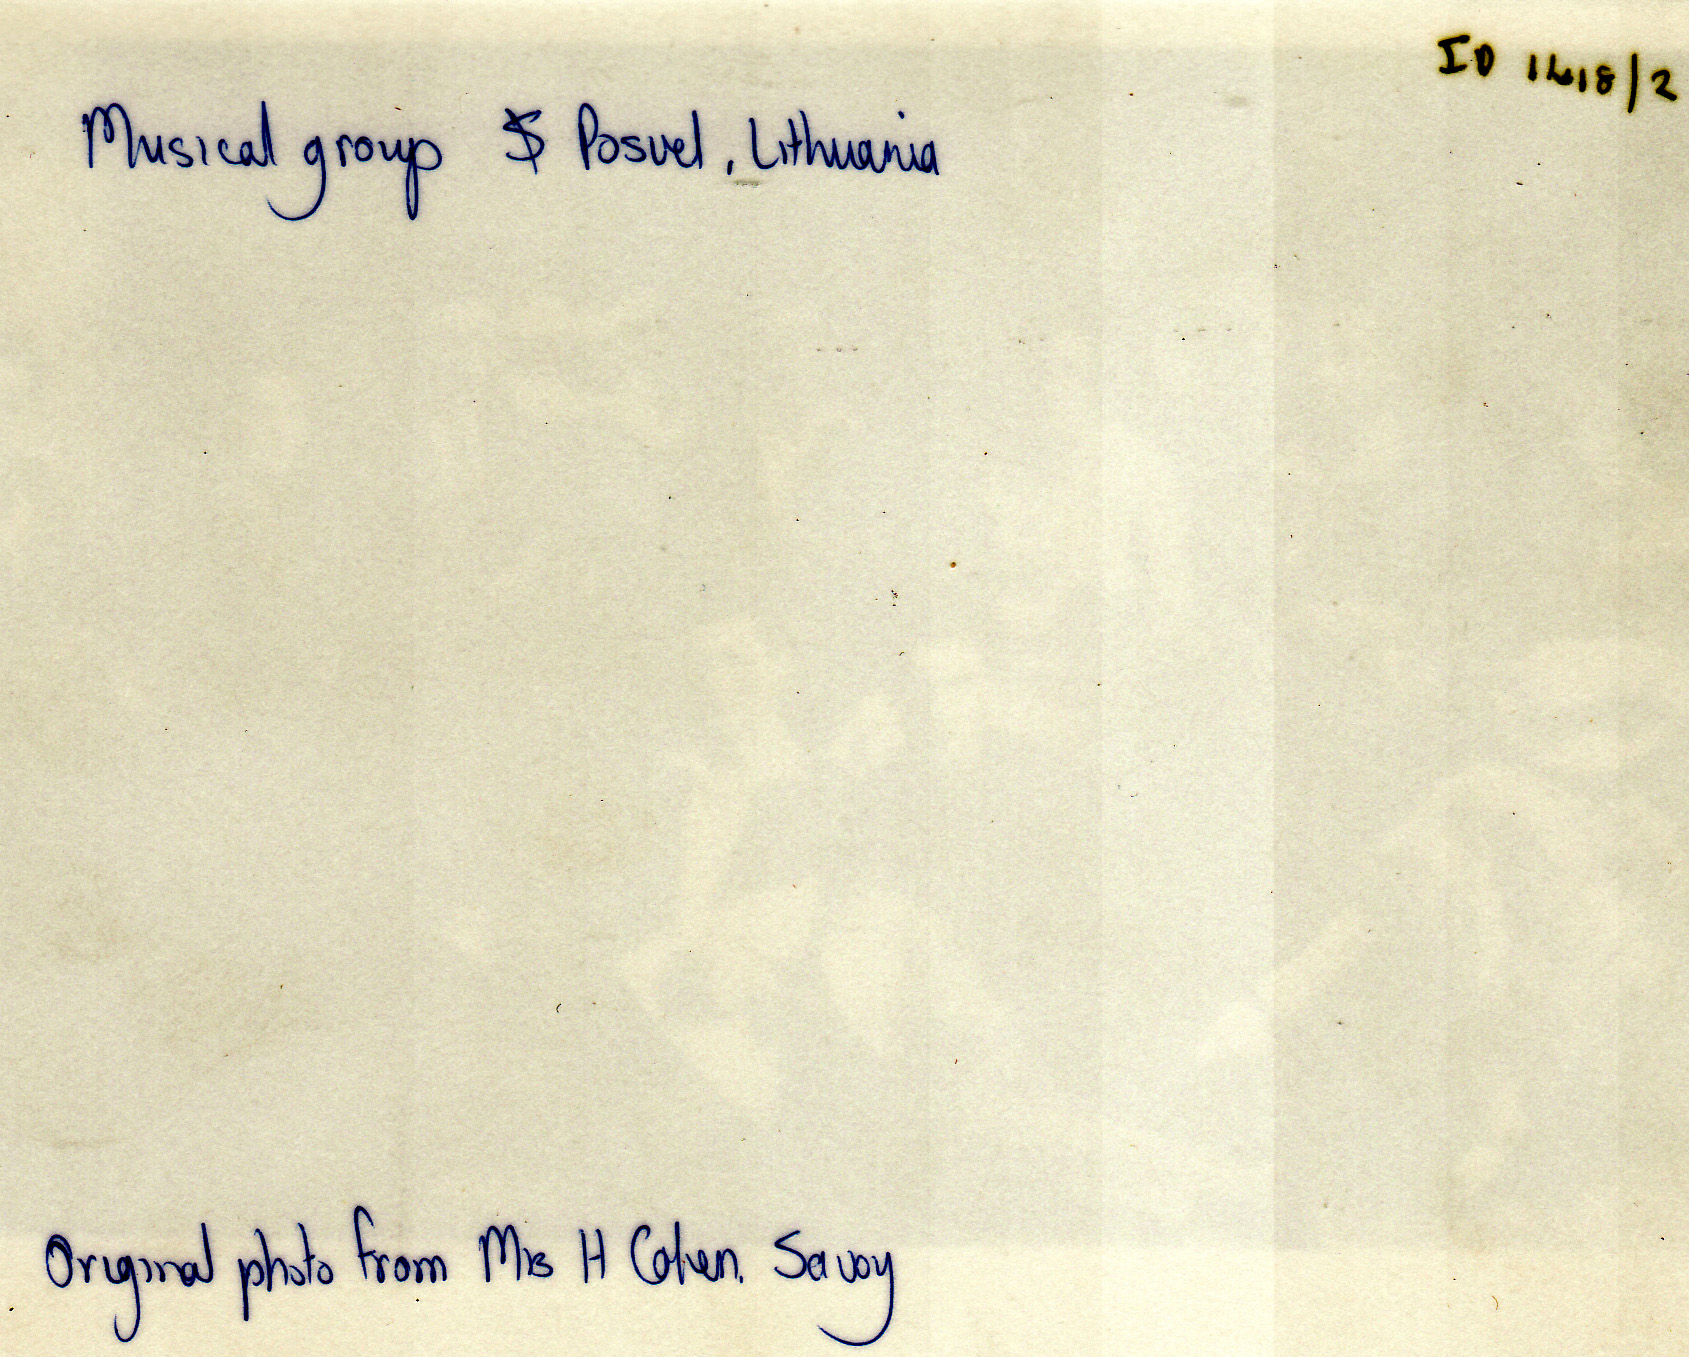 ID 1418/2
Musical group $ Posvel, Lithuania
Original photo from Mrs H Cohen. Savoy